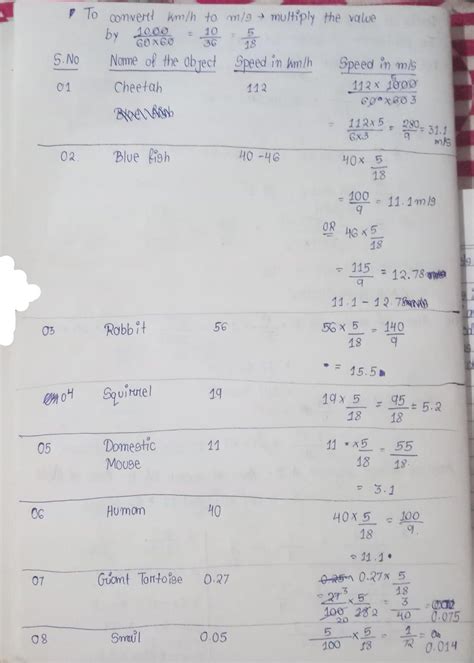 * To convert km/h to m/s → multiply the value
by 1000/60×60 = 10/36 = 5/18
S.No Name of the Object Speed in km/h Speed in m/s
01 Cheetah 112 112 × 1000/60 × 60
= 112 × 5/6×3 = 280/9 = 31.1 m/s
02 Blue fish 40-46 40 × 5/18
= 100/9 = 11.1 m/s
OR 46 × 5/18
= 115/9 = 12.78
11.1 - 12.78
03 Rabbit 56 56 × 5/18 = 140/9
= 15.5
04 Squirrel 19 19 × 5/18 = 95/18 = 5.2
05 Domestic 11 11 × 5/18 = 55/18
Mouse
= 3.1
06 Human 40 40 × 5/18 = 100/9
= 11.1
07 Giant Tortoise 0.27 0.27 × 5/18
= 27/100 × 5/18 = 3/40 = 0.075
08 Snail 0.05 5/100 × 5/18 = 1/72 = 0.014